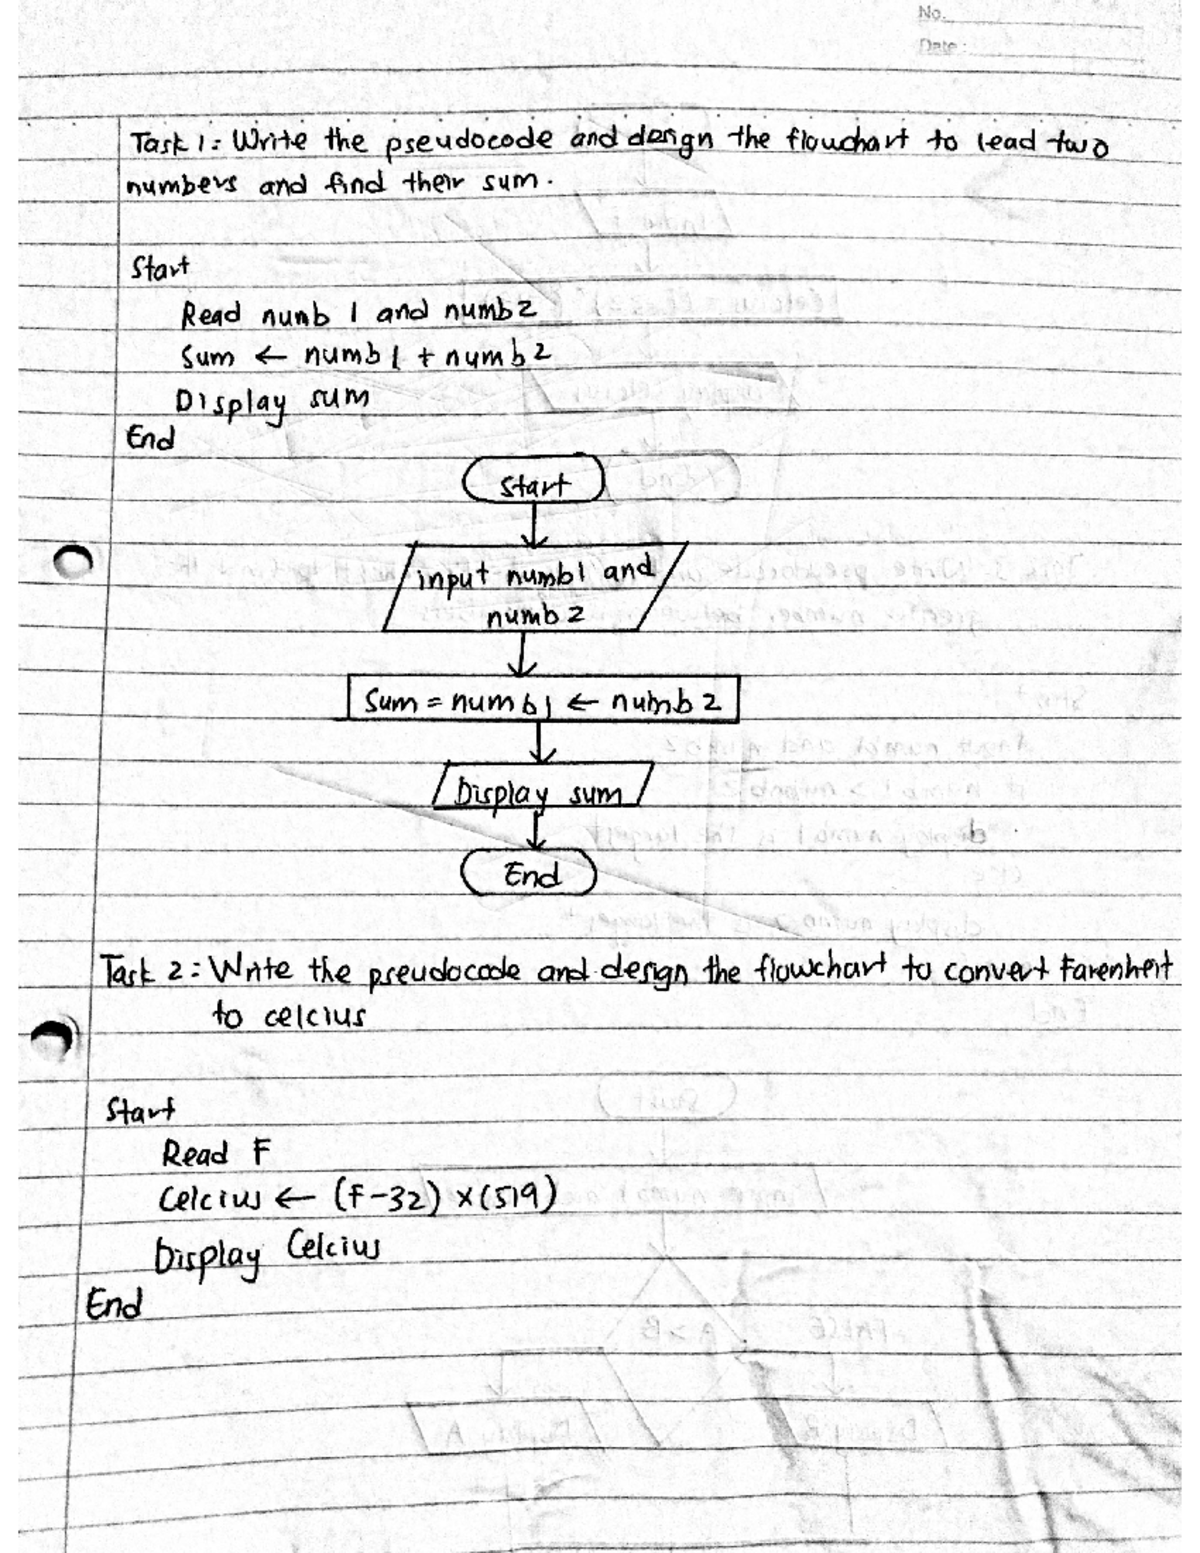 No.
Date:
Task 1: Write the pseudocode and design the flowchart to lead two
numbers and find their sum.
Start
Read numb 1 and numb2
Sum ← numb1 + numb2
Display sum
End
Start
input numb1 and
numb2
Sum = numb1 ← numb2
Display sum
End
Task 2: Write the pseudocode and design the flowchart to convert Farenheit
to celcius
Start
Read F
Celcius ← (F-32) x(519)
Display Celcius
End